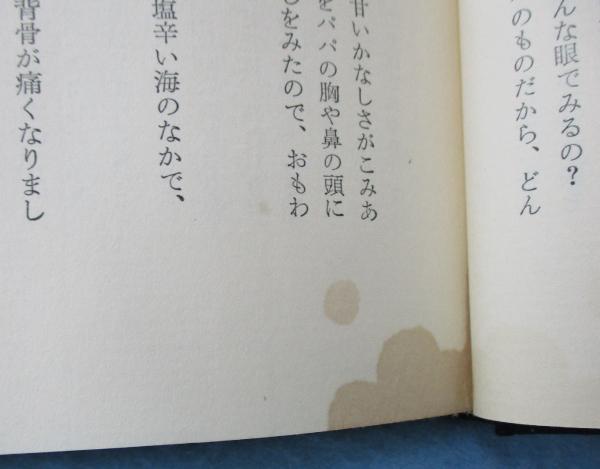 んな眼でみるの？
のものだから、どん
甘いかなしさがこみあ
をパパの胸や鼻の頭に
をみたので、おもわ
塩辛い海のなかで、
背骨が痛くなりまし